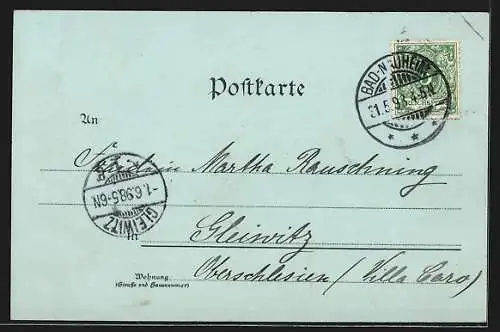 BAD-NAUHEIM
31.5.98. 5-6N.
Postkarte
An
Fräulein Martha Rauschning
GLEIWITZ
-1.6.98.5-6N
in
Gleiwitz
Wohnung
(Straße und Hausnummer)
Oberschlesien (Villa Caro)